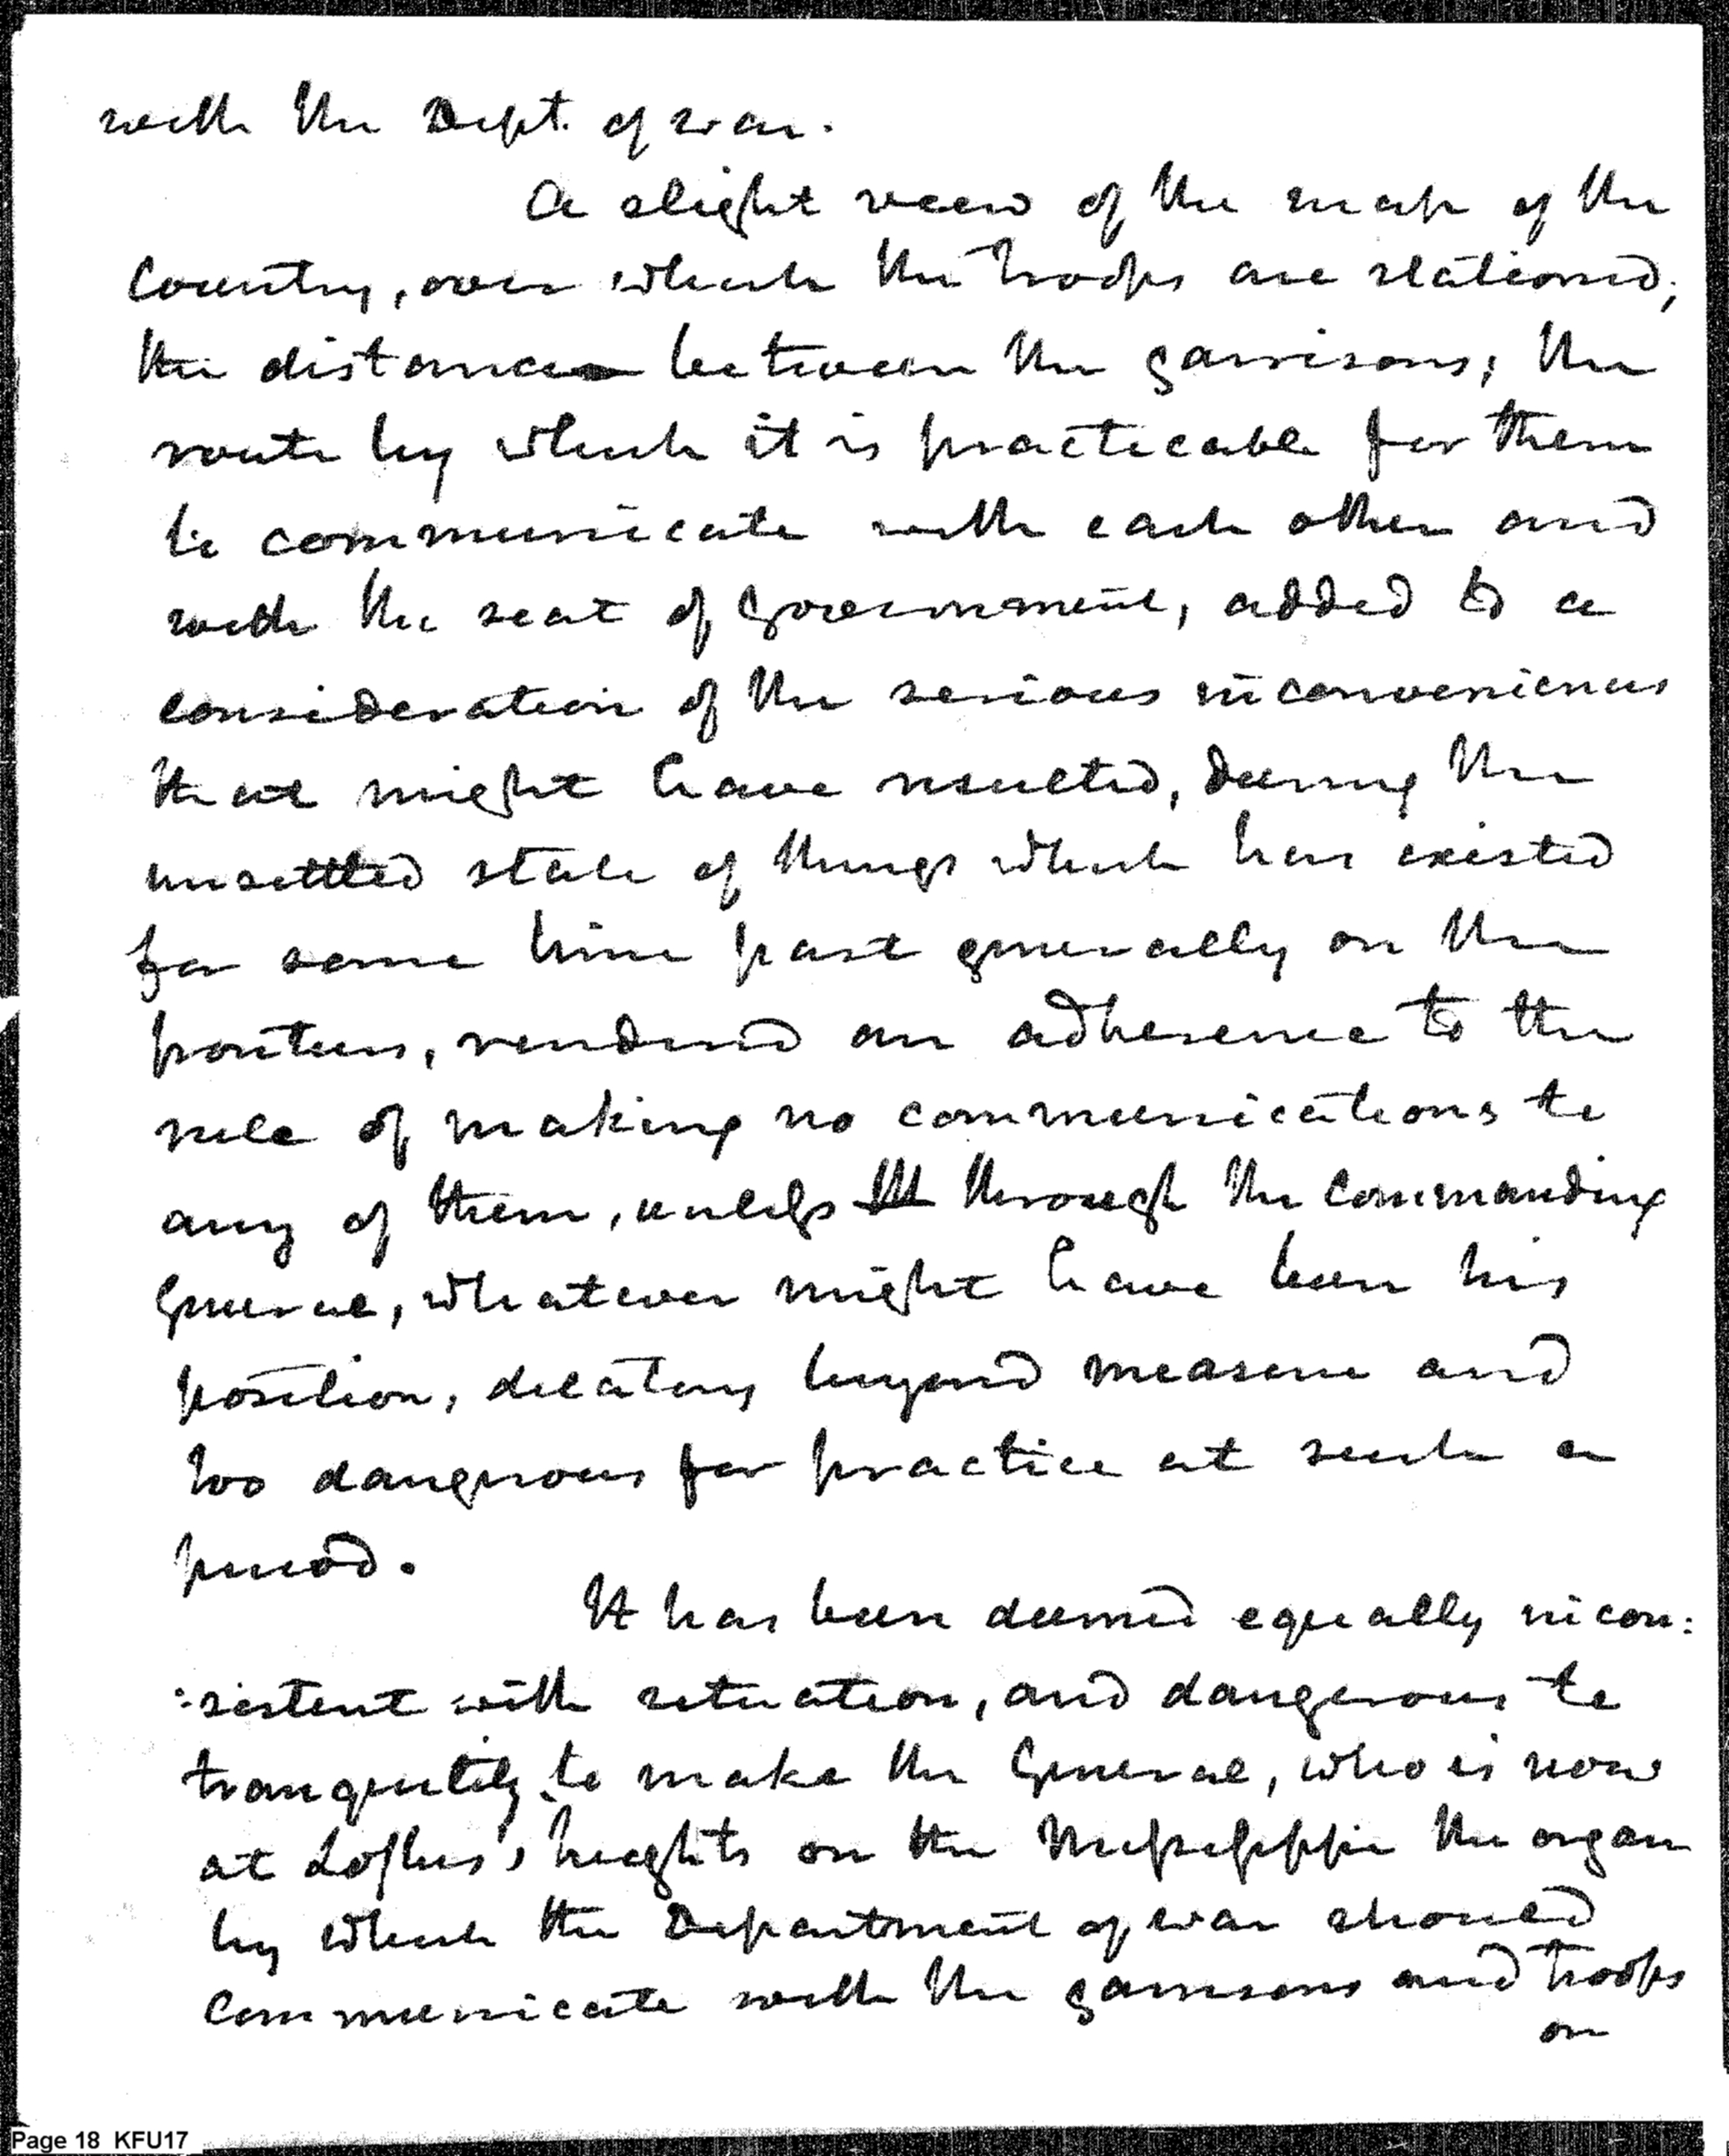 with the Dept. of war.
A slight view of the map of the
Country, over which the troops are stationed;
the distance between the garrisons; the
route by which it is practicable for them
to communicate with each other and
with the seat of Government, added to a
consideration of the serious inconveniences
that might have resulted, during the
unsettled state of things which has existed
for some time past generally on the
frontiers, rendered an adherence to the
rule of making no communications to
any of them, unless through the Commanding
General, whatever might have been his
position, dilatory beyond measure and
too dangerous for practice at such a
period.
It has been deemed equally incon:
:sistent with situation, and dangerous to
tranquility to make the General, who is now
at Loftus's heights on the Mississippi the organ
by which the Department of war should
communicate with the garrisons and troops
on
Page 18 KFU17